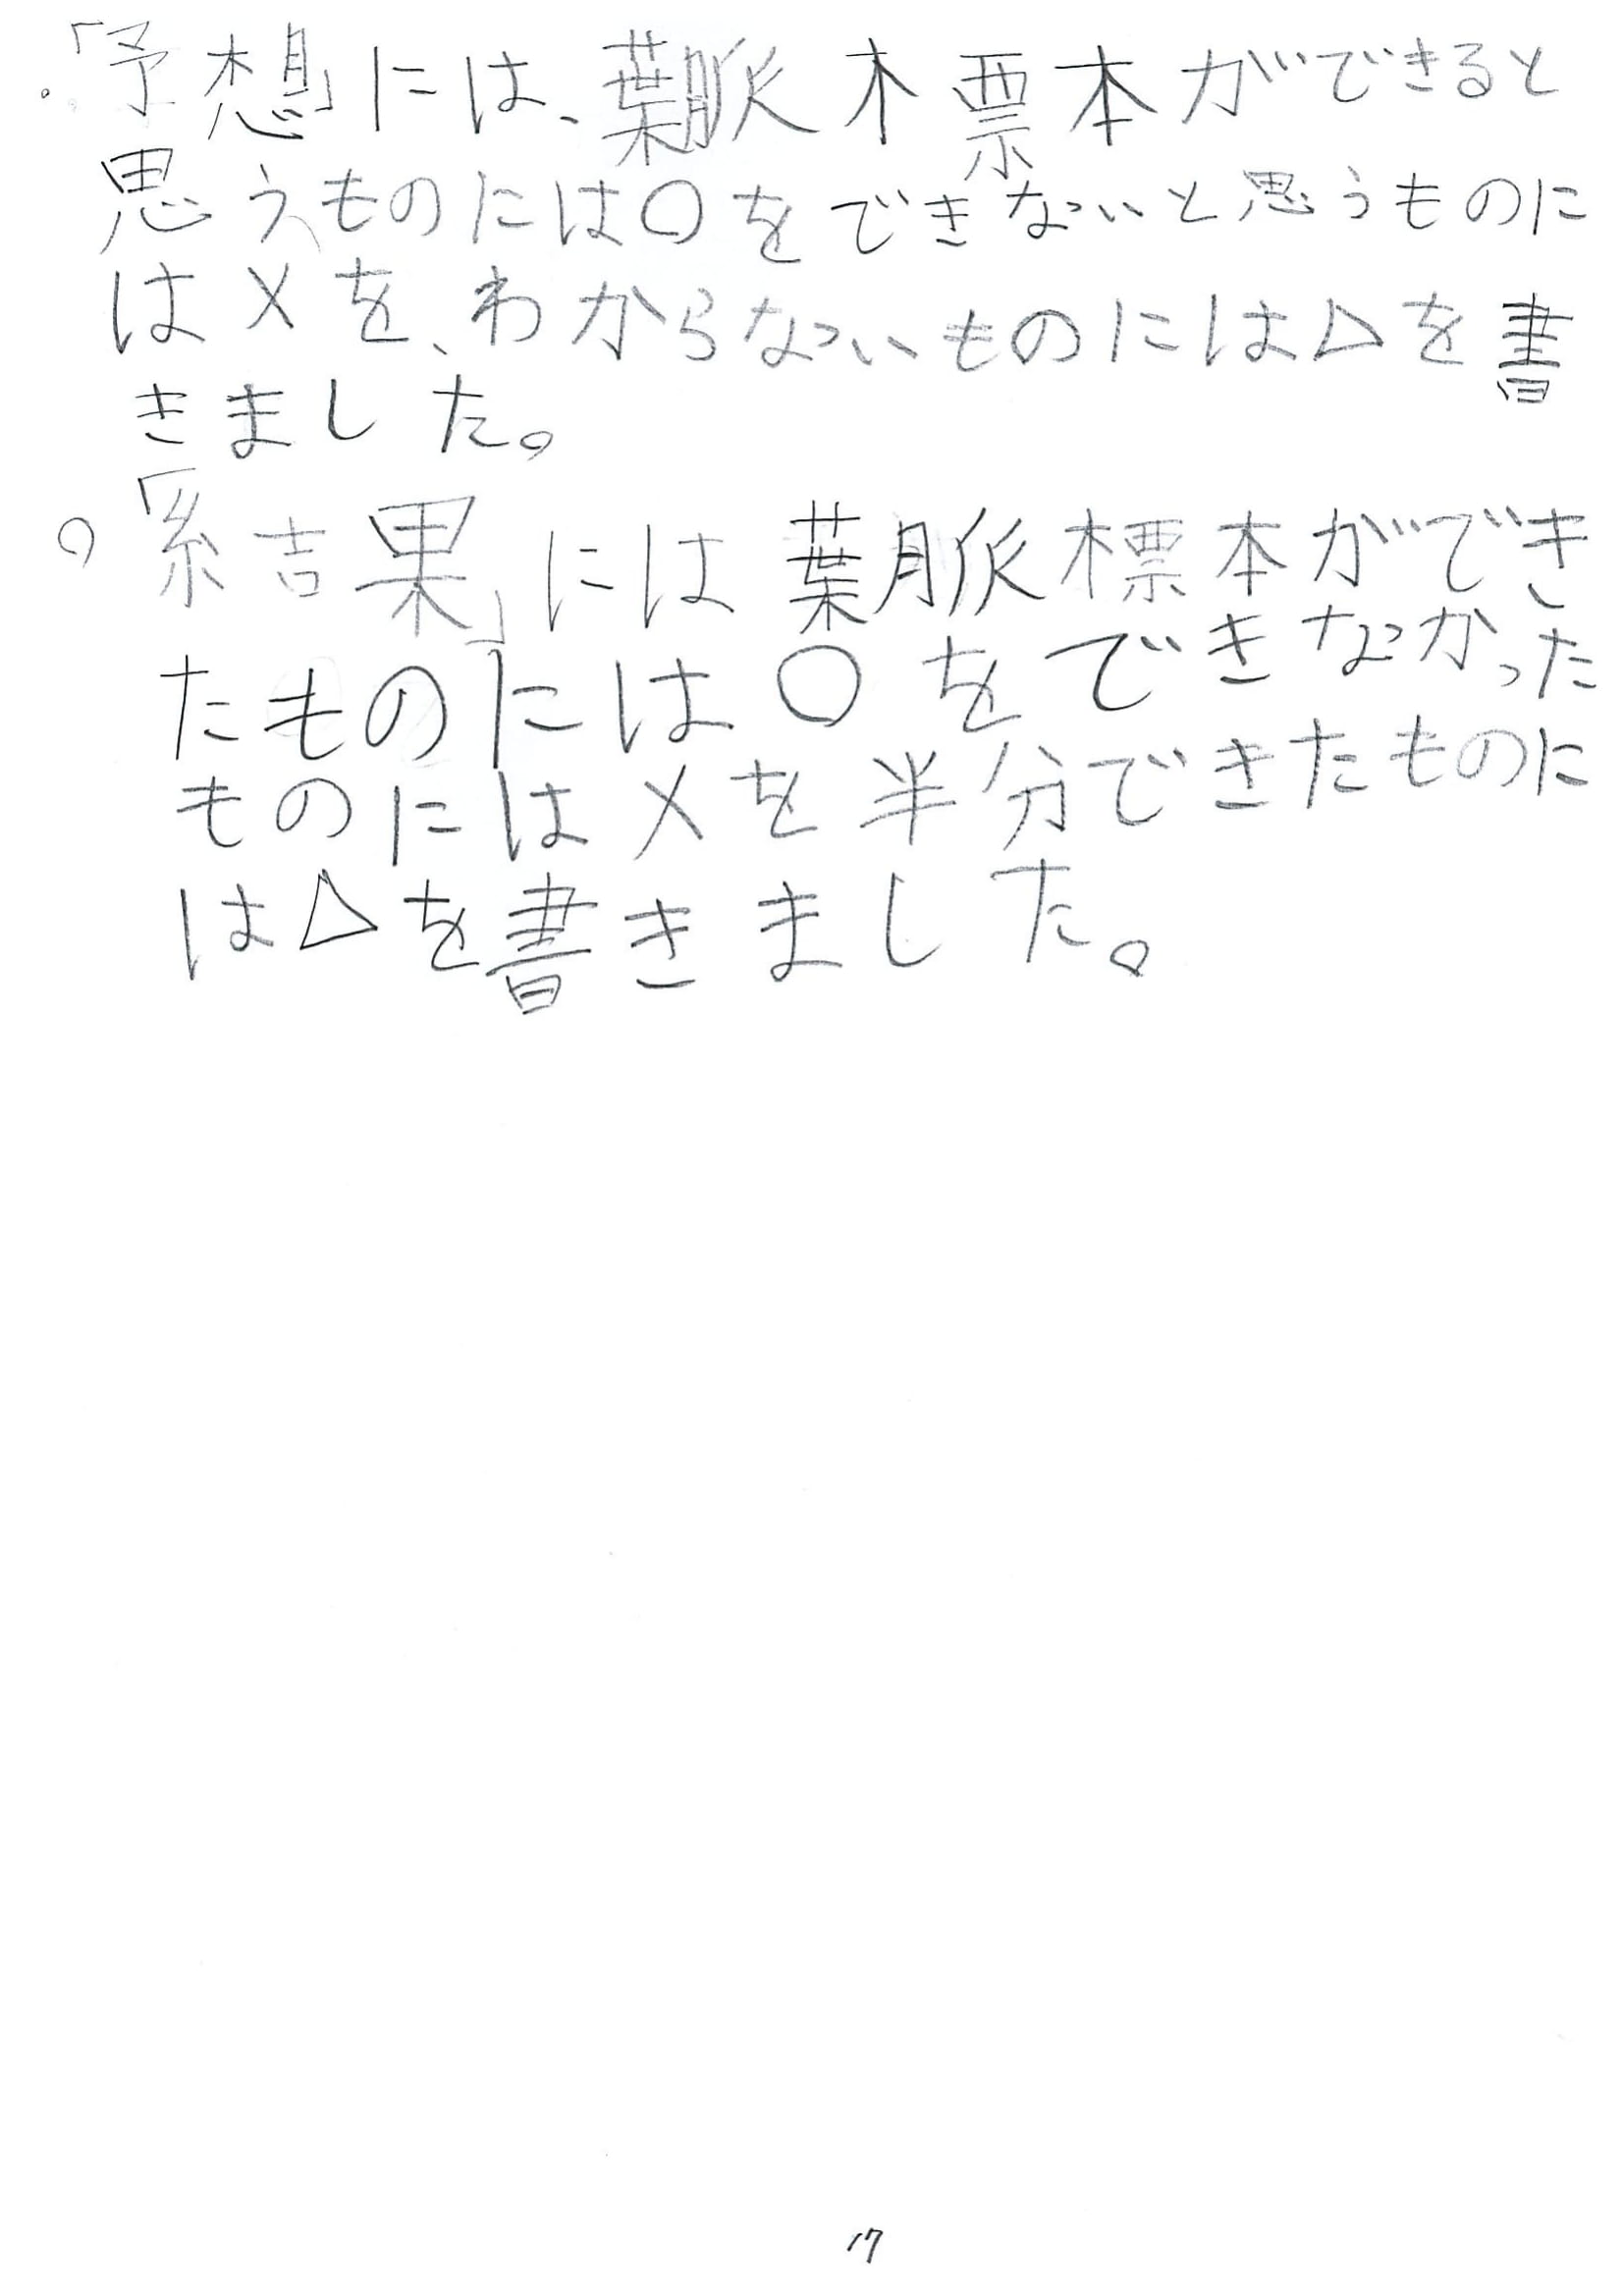 ・「予想」には、葉脈標本ができると
思うものには○をできないと思うものに
は×を、わからないものには△を書
きました。
○「結果」には葉脈標本ができ
たものには○をできなかった
ものには×を半分できたものに
は△を書きました。
17